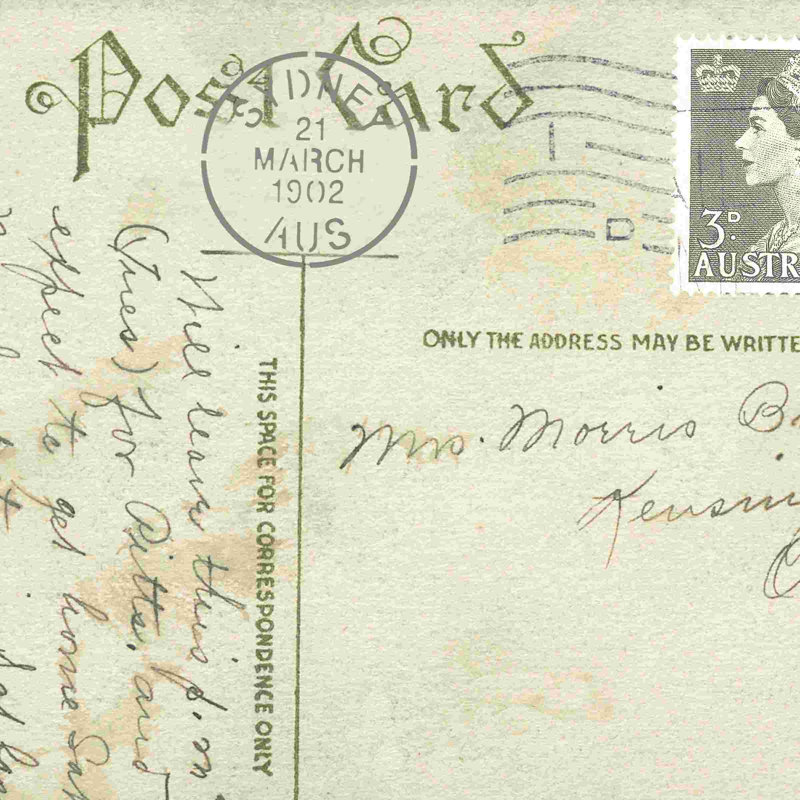 Post Card
SYDNEY
21
MARCH
1902
AUS
D
3D.
AUSTR
ONLY THE ADDRESS MAY BE WRITTE
THIS SPACE FOR CORRESPONDENCE ONLY
Mrs. Morris B
Kensin
Will leave this p.m
(Tues) for Pitts. and
expect to get home Sat